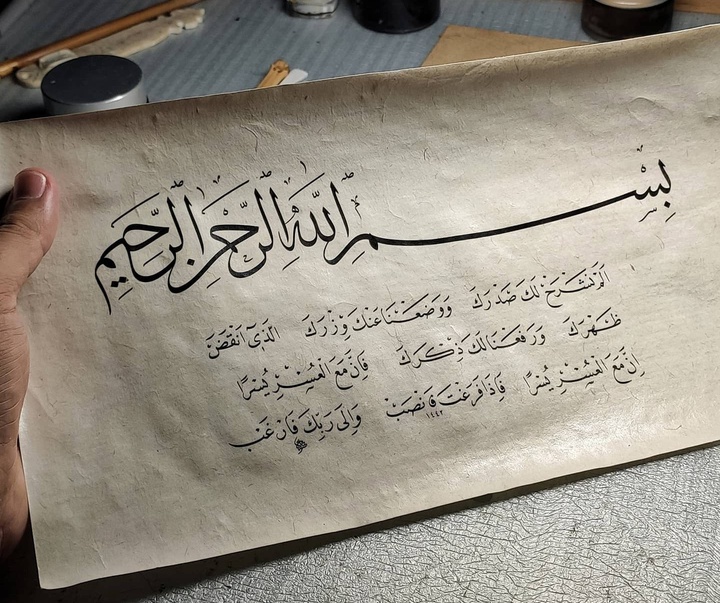 بِسْمِ اللَّهِ الرَّحْمٰنِ الرَّحِيمِ
اَلَمْ نَشْرَحْ لَكَ صَدْرَكَ وَوَضَعْنَا عَنْكَ وِزْرَكَ اَلَّذِى اَنْقَضَ
ظَهْرَكَ وَرَفَعْنَا لَكَ ذِكْرَكَ فَاِنَّ مَعَ الْعُسْرِ يُسْرًا
اِنَّ مَعَ الْعُسْرِ يُسْرًا فَاِذَا فَرَغْتَ فَانْصَبْ وَاِلٰى رَبِّكَ فَارْغَبْ
١٤٤٢